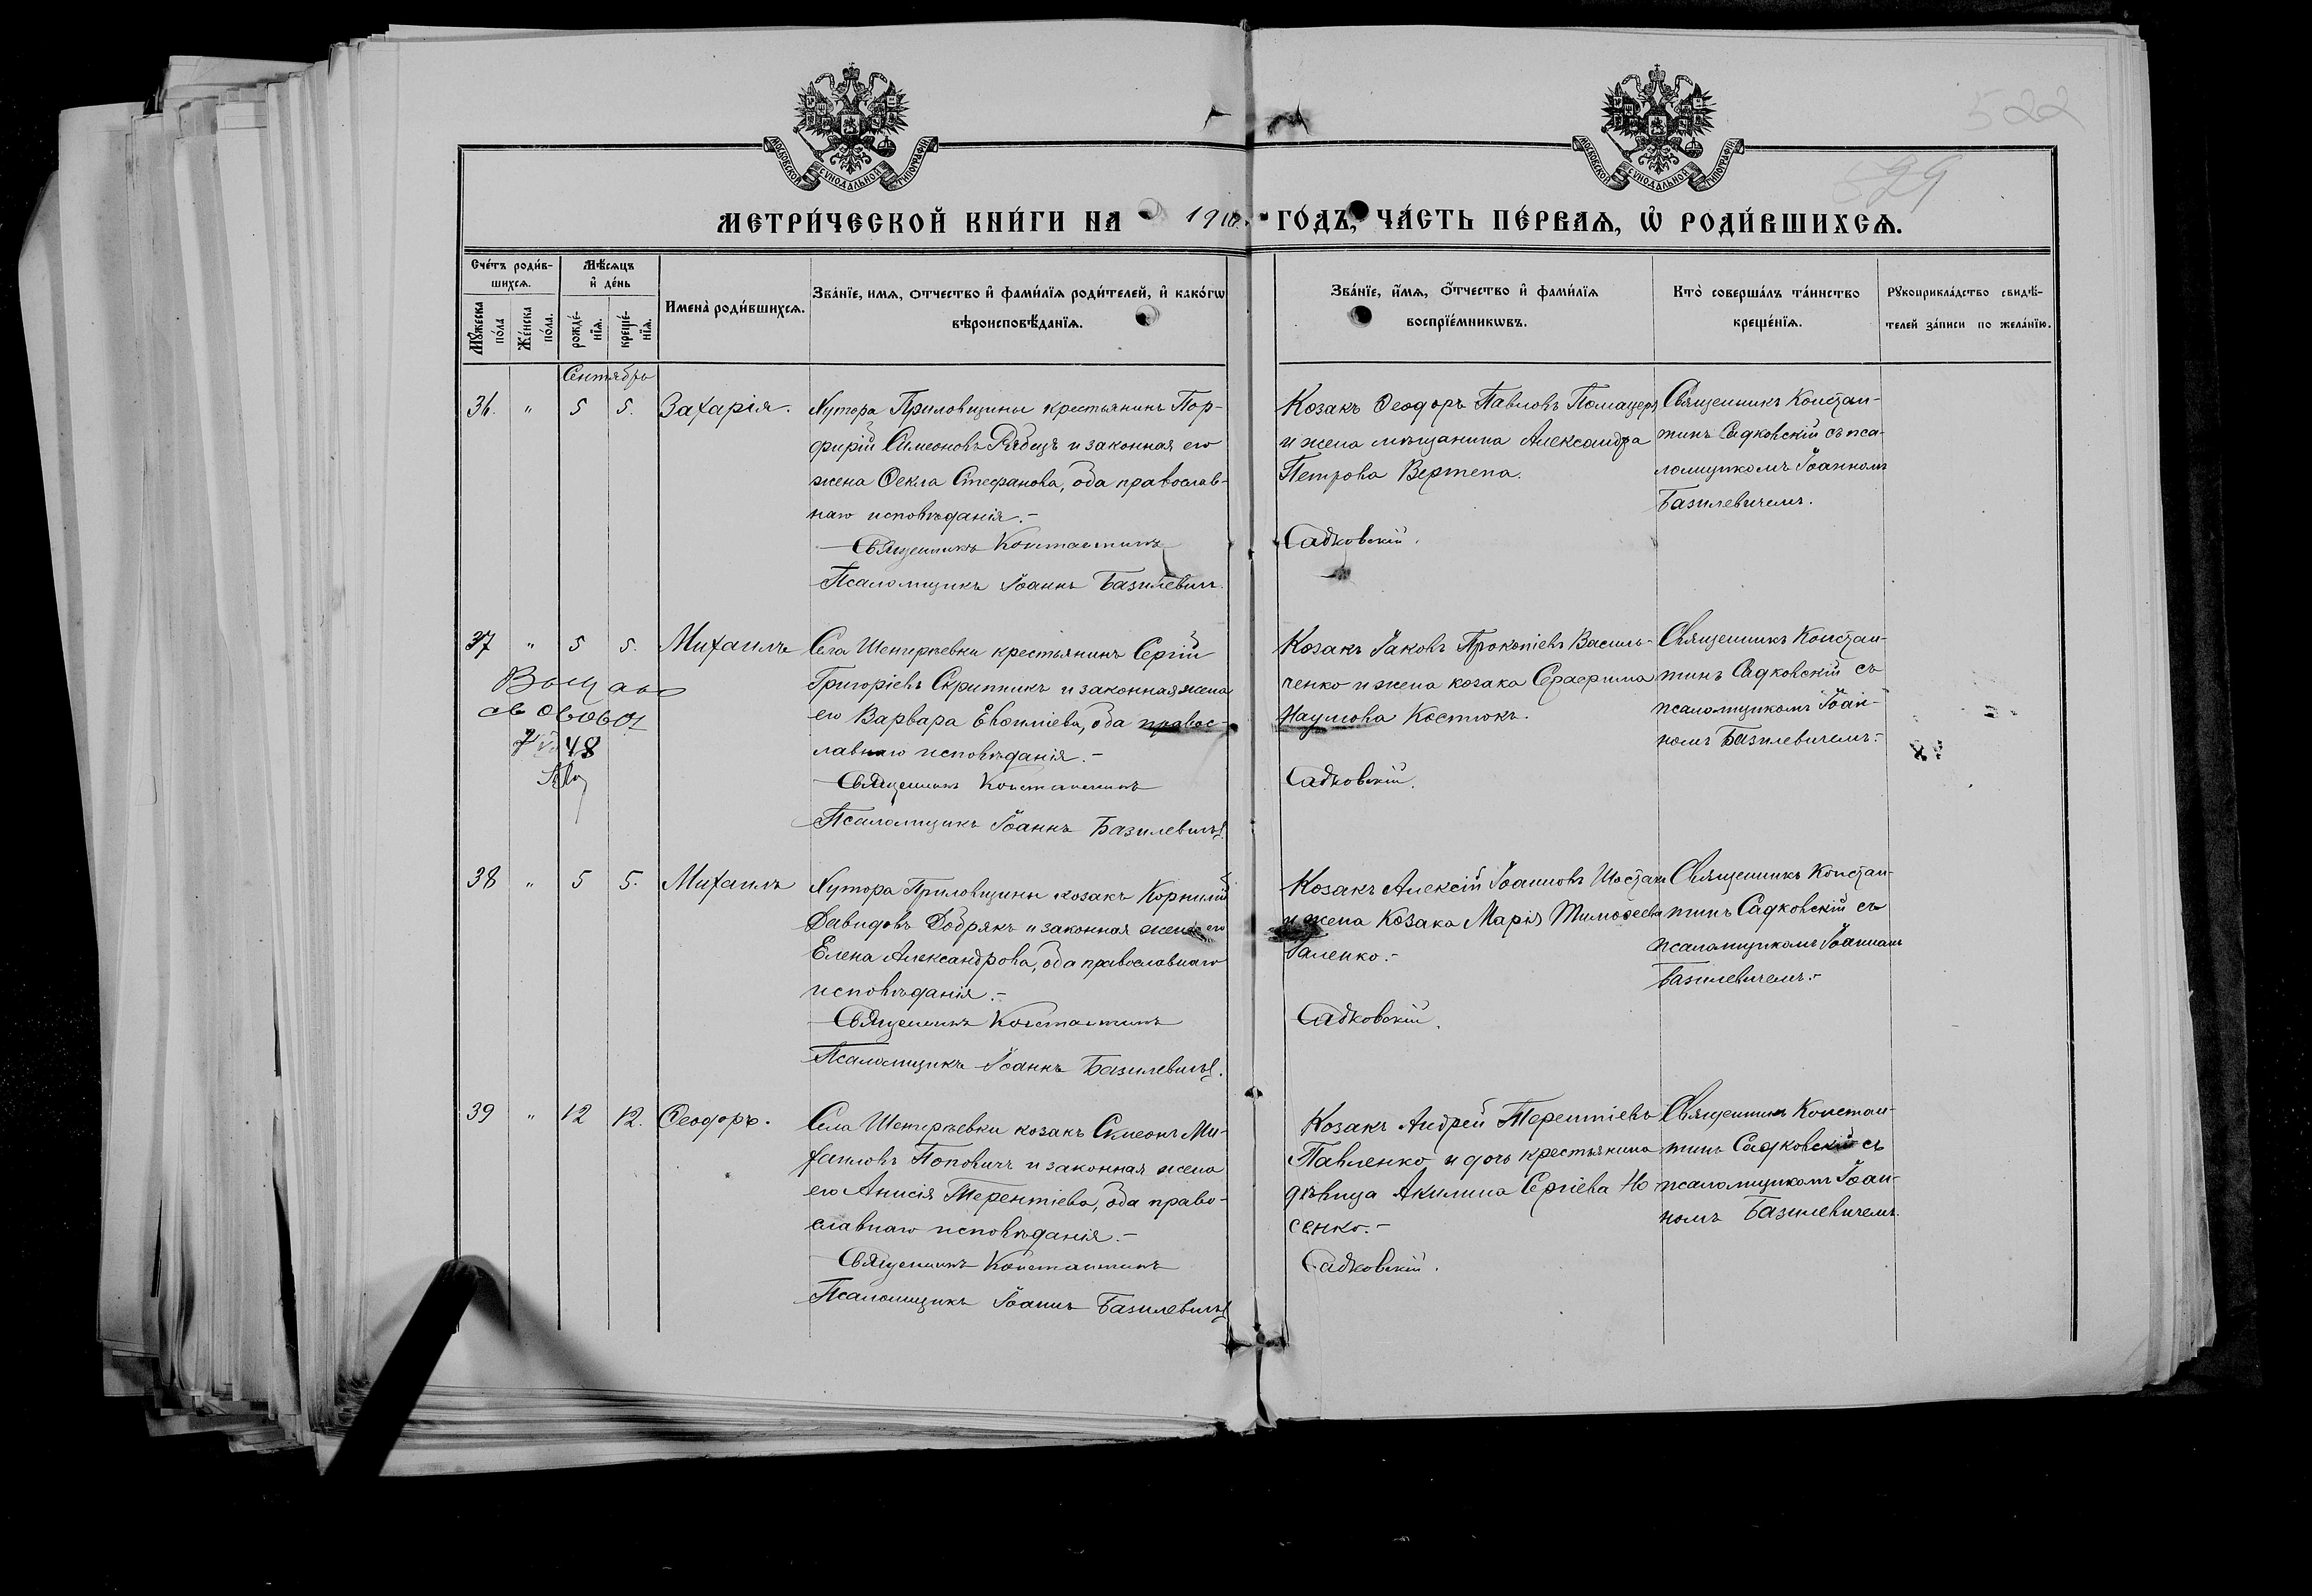 522
529
МОСКОВСКОЙ СѴНОДАЛЬНОЙ ТИПОГРАФІИ
МОСКОВСКОЙ СѴНОДАЛЬНОЙ ТИПОГРАФІИ
МЕТРИ́ЧЕСКОЙ КНИ́ГИ НА 1910 ГО́ДЪ, ЧА́СТЬ ПЕ́РВАѦ, Ѡ҆ РОДИ́ВШИХСѦ.
Сче́тъ роди́в-
шихсѧ.
Мѣ́сѧцъ
и҆ де́нь
Мꙋ́жеска
по́ла
Же́нска
по́ла.
рожде́-
нїѧ.
креще́-
нїѧ.
Имена̀ роди́вшихсѧ.
Зва́нїе, имѧ, отчество и҆ фами́лїѧ роди́телей, и҆ како́гѡ
вѣроисповѣ́данїѧ.
Зва́нїе, и҆́мѧ, ѻ҆́тчество и҆ фами́лїѧ
воспрїе́мникѡвъ.
Кто̀ соверша́лъ та́инство
креще́нїѧ.
Рꙋкоприкла́дство свидѣ́-
телей за́писи по жела́нїю.
Сентябрь
36. " 5 5. Захарія.
Хутора Приловщины крестьянинъ Пор-
фирій Симеоновъ Рябецъ и законная его
жена Ѳекла Стефанова, оба православ-
наго исповѣданія.-
Священникъ Константинъ
Псаломщикъ Іоаннъ Базилевич.
Козакъ Ѳеодоръ Павловъ
и жена мѣщанина Александра
Петрова Вертепа.
Садковскій.
Священникъ Констан-
тинъ Садковскій съ пса-
ломщикомъ Іоанномъ
Базилевичемъ.
37 " 5 5. Михаилъ
48
Села Шепиревки крестьянинъ Сергій
Григоріевъ Скрипникъ и законная жена
его Варвара Евфиміева, оба правос-
лавнаго исповѣданія.-
Священникъ Константинъ
Псаломщикъ Іоаннъ Базилевичъ.
Козакъ Іаковъ Прокопіевъ Василь-
ченко и жена козака Серафима
Наумова Костюкъ.
Садковскій.
Священникъ Констан-
тинъ Садковскій съ
псаломщикомъ Іоан-
номъ Базилевичемъ.-
38 " 5 5. Михаилъ
Хутора Приловщины козакъ Корнилій
Давидовъ Добрякъ и законная жена его
Елена Александрова, оба православнаго
исповѣданія.-
Священникъ Константинъ
Псаломщикъ Іоаннъ Базилевичъ.
Козакъ Алексій Іоанновъ Шостакъ
и жена Козака Марія Тимоѳеева
Галенко.-
Садковскій.
Священникъ Констан-
тинъ Садковскій съ
псаломщикомъ Іоанномъ
Базилевичемъ.-
39 " 12 12. Ѳеодоръ.
Села Шепиревки козакъ Симеонъ Ми-
хаиловъ Поповичъ и законная жена
его Анисія Терентіева, оба право-
славнаго исповѣданія.-
Священникъ Константинъ
Псаломщикъ Іоаннъ Базилевичъ
Козакъ Андрей Терентіевъ
Павленко и дочь крестьянина
дѣвица Акилина Сергіева Но-
сенко.-
Садковскій.
Священникъ Констан-
тинъ Садковскій съ
псаломщикомъ Іоан-
номъ Базилевичемъ.